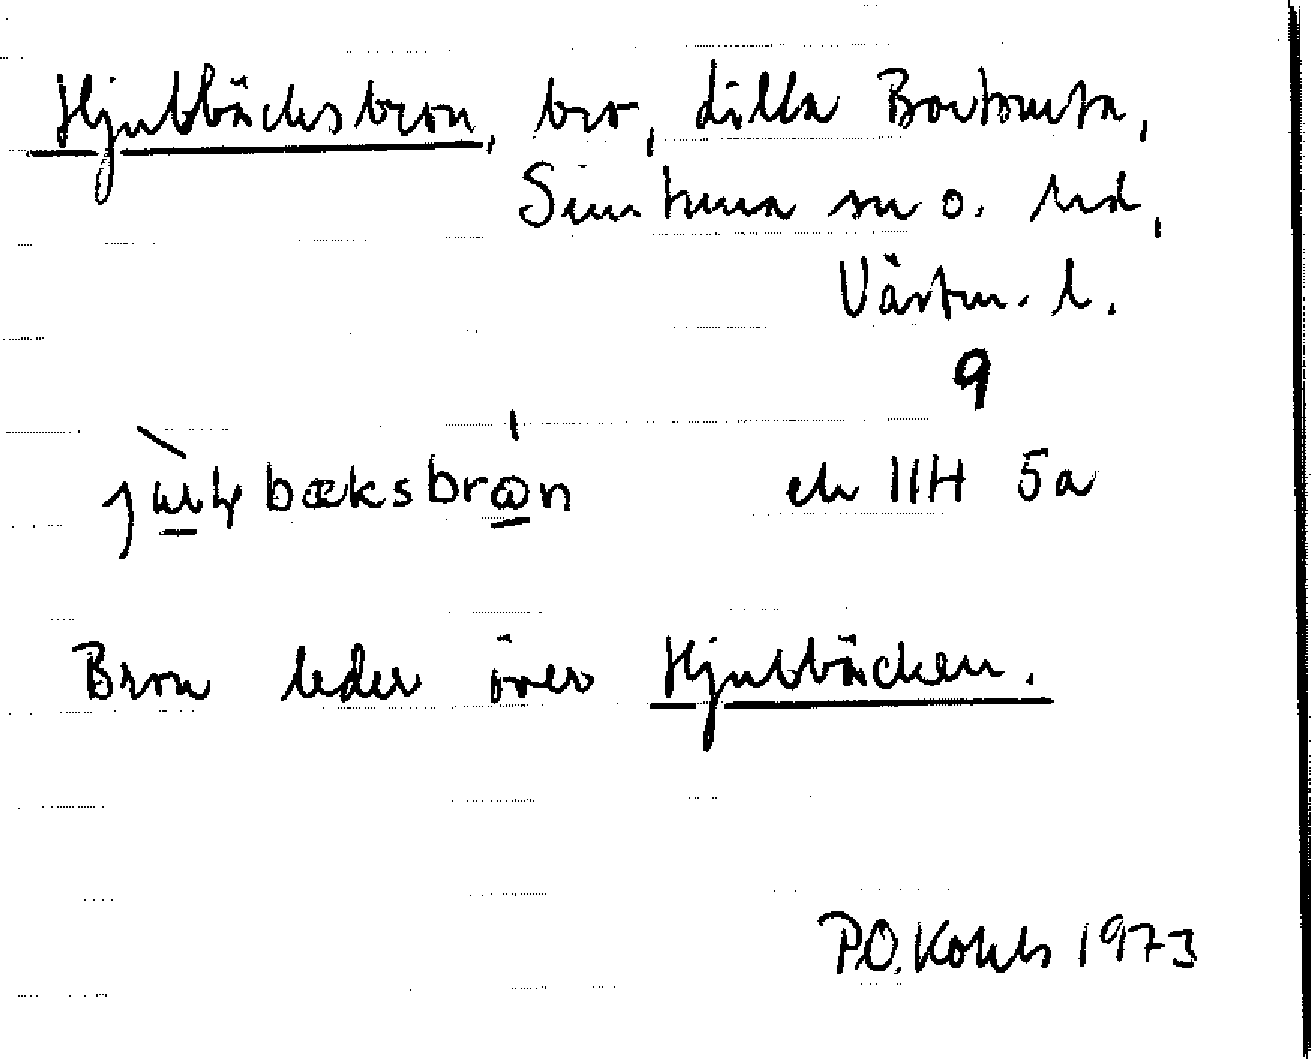 Hjulbäcksbron, bro, Lilla Bortomta,
Simtuna sn o. hd,
Västm. l.
9
bæksbrɷn ek 11H 5a
Bron leder över Hjulbäcken.
P.O. Kohls 1973